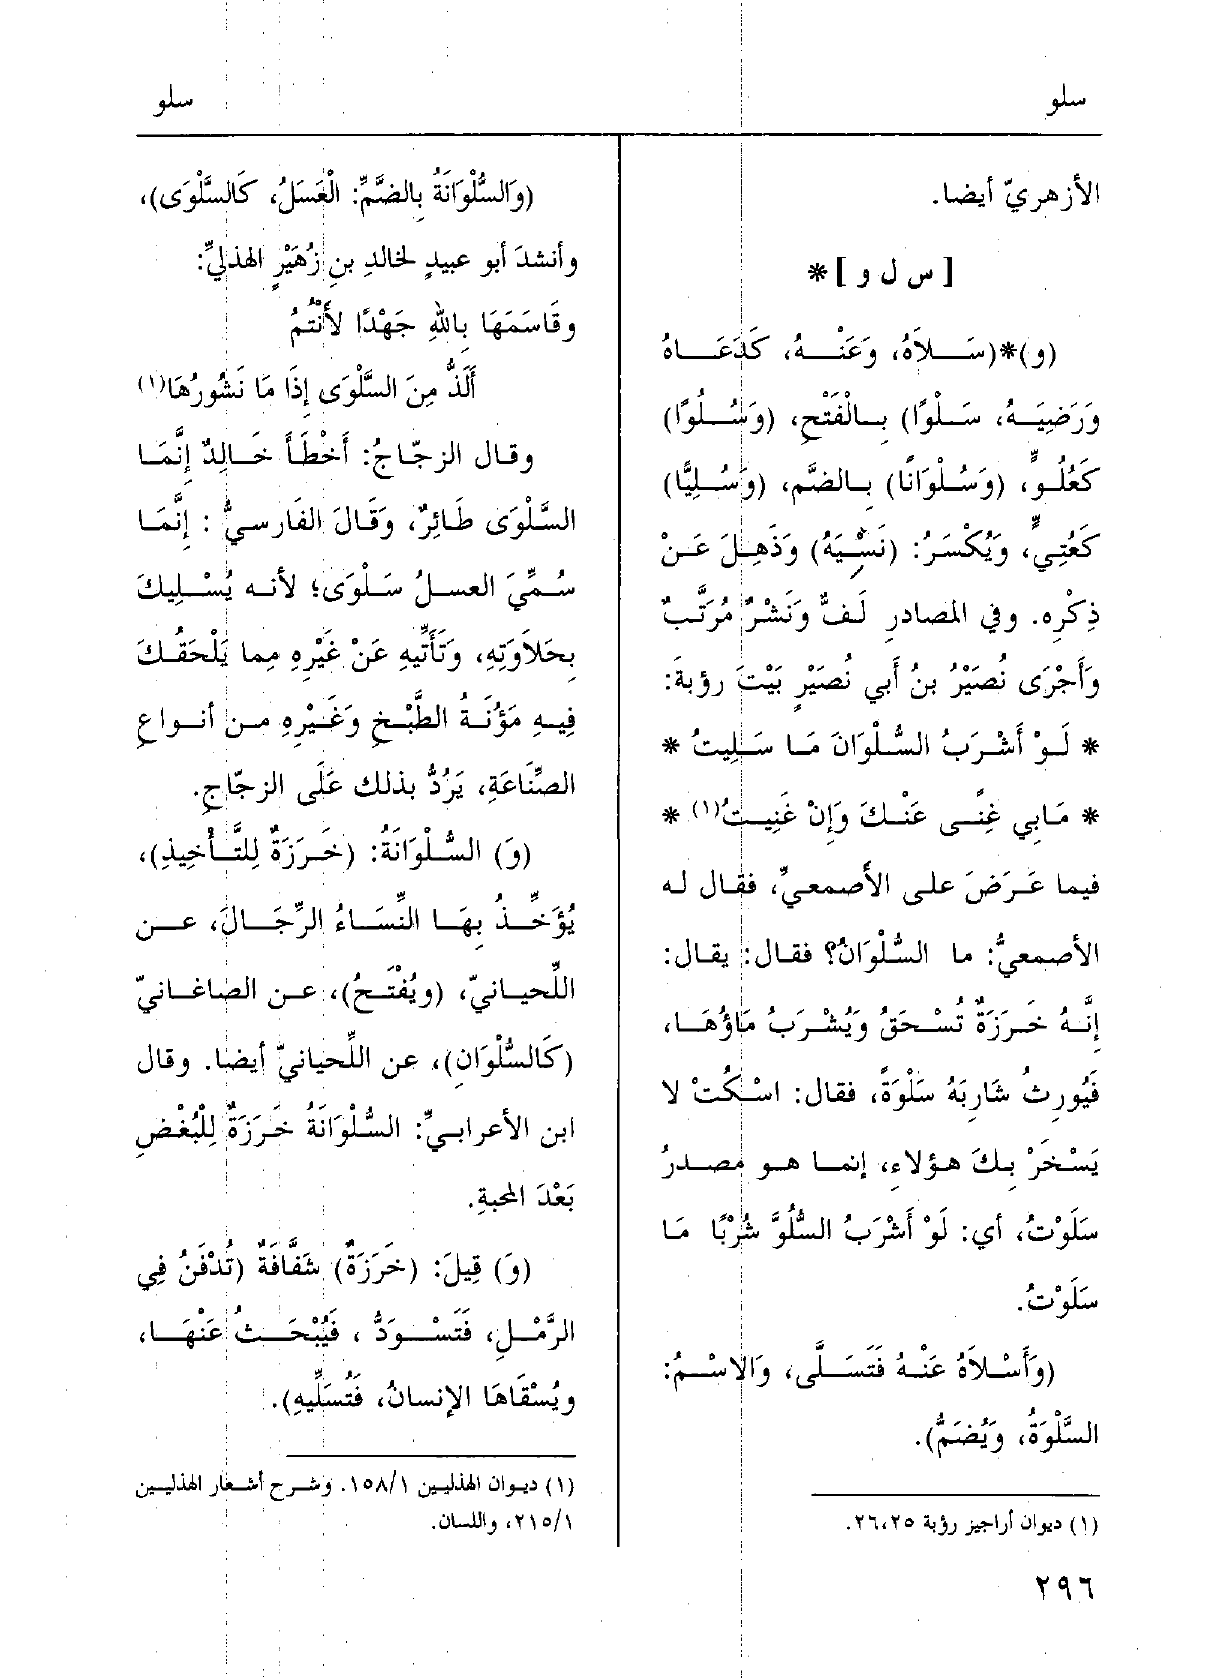 سلو
سلو
الأزهريّ أيضا.
[ س ل و ] *
(و)*(سَـلاَهُ، وَعَنْـهُ، كَدَعَـاهُ
وَرَضِيَـهُ، سَلْوًا) بِـالْفَتْحِ، (وَسُـلُوًّا)
كَعُلُـوٍّ، (وَسُلْوَانًا) بـالضَّم، (وَسُـلِيًّا)
كَعُتِـيٍّ، وَيُكْسَـرُ: (نَسِيَهُ) وَذَهِـلَ عَـنْ
ذِكْرِه. وفي المصادرِ لَـفٌّ وَنَشْـرٌ مُرَتَّـبٌ
وَأَجْرَى نُصَيْرُ بنُ أبي نُصَيْرٍ بَيْتَ رؤبة:
* لَـوْ أَشْـرَبُ السُّـلْوَانَ مَـا سَـلِيتُ *
* مَـابي غِنًـى عَنْـكَ وَإِنْ غَنِيـتُ(١) *
فيما عَـرَضَ علـى الأصمعيِّ، فقـال لـه
الأصمعيُّ: ما السُّلْوَانُ؟ فقـال: يقـال:
إِنَّـهُ خَـرَزَةٌ تُسْـحَقُ وَيُشْـرَبُ مَاؤُهَـا،
فَيُورِثُ شَارِبَهُ سَلْوَةً، فقال: اسْـكُتْ لا
يَسْـخَرْ بِـكَ هـؤلاءِ، إنمـا هـو مصـدرُ
سَلَوْتُ، أي: لَوْ أَشْرَبُ السُّلُوَّ شُرْبًا مَـا
سَلَوْتُ.
(وَأَسْـلاَهُ عَنْـهُ فَتَسَـلَّى، وَالاسْـمُ:
السَّلْوَةُ، وَيُضَمُّ).
(١) ديوان أراجيز رؤبة ٢٥،٢٦.
٢٩٦
(وَالسُّلْوَانَةُ بِالضَّمِّ: الْعَسَلُ، كَالسَّلْوَى)،
وأنشدَ أبو عبيدٍ لخالدِ بنِ زُهَيْرٍ الهذليِّ:
وقَاسَمَهَا بِاللهِ جَهْدًا لأَنْتُمُ
أَلَذُّ مِنَ السَّلْوَى إِذَا مَا نَشُورُهَا(١)
وقـال الزجّاجُ: أَخْطَأَ خَـالِدٌ إِنَّمَـا
السَّلْوَى طَـائِرٌ، وَقَـالَ الفَارسيُّ : إِنَّمَـا
سُـمِّيَ العسـلُ سَـلْوَى؛ لأنـه يُسْـلِيكَ
بِحَلاَوَتِهِ، وَتَأَتِّيهِ عَنْ غَيْرِهِ مِما يَلْحَقُـكَ
فِيـهِ مَؤُنَـةُ الطَّبْـخِ وَغَيْـرِهِ مـن أنـواعِ
الصِّنَاعَةِ، يَرُدُّ بذلك عَلَى الزجّاجِ.
(وَ) السُّـلْوَانَةُ: (خَـرَزَةٌ لِلتَّـأْخِيذِ)،
يُؤَخِّـذُ بِهَـا النِّسَـاءُ الرِّجَـالَ، عـن
اللِّحيـانيّ، (وَيُفْتَـحُ)، عـن الصاغـانيّ
(كَالسُّلْوَانِ)، عن اللِّحيانيّ أيضا. وقال
ابن الأعرابيِّ: السُّلْوَانَةُ خَرَزَةٌ لِلْبُغْضِ
بَعْدَ المحبةِ.
(وَ) قِيلَ: (خَرَزَةٌ) شَفَّافَةٌ (تُدْفَنُ فِي
الرَّمْـلِ، فَتَسْـوَدُّ ، فَيُبْحَـثُ عَنْهَـا،
ويُسْقَاهَا الإنسانُ، فَتُسَلِّيهِ).
(١) ديـوان الهذليين ١٥٨/١. وشـرح أشـعار الهذليـين
٢١٥/١، واللسان.